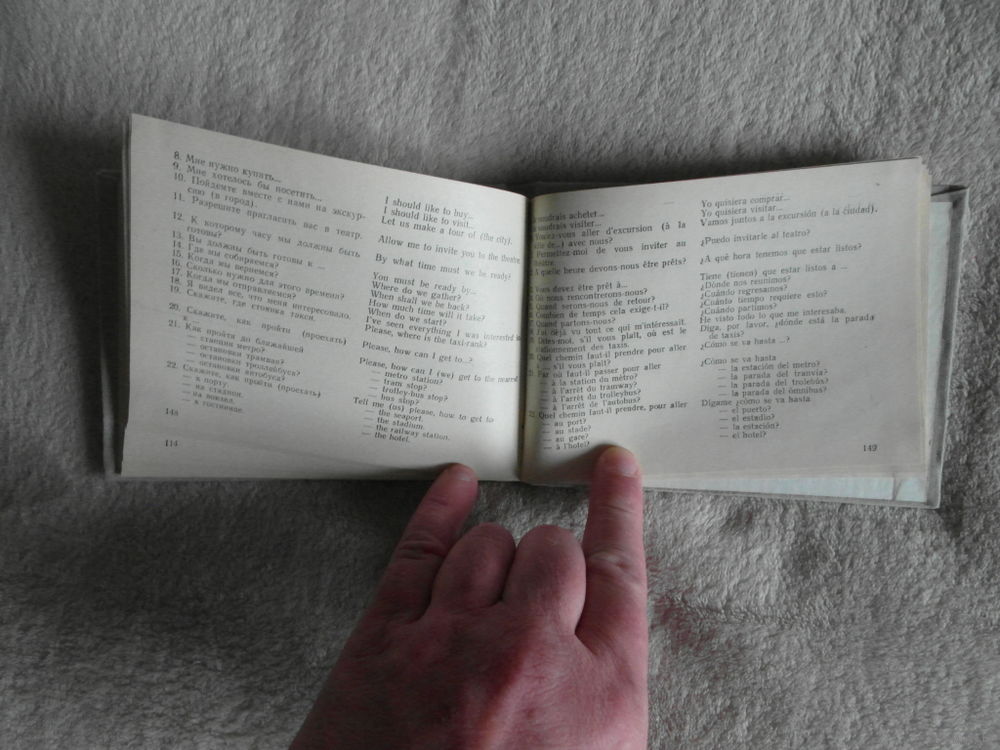 8. Мне нужно купить...
9. Мне хотелось бы посетить...
10. Пойдемте вместе с нами на экскур-
сию (в город).
11. Разрешите пригласить вас в театр.
12. К которому часу мы должны быть
готовы?
13. Вы должны быть готовы к ...
14. Где мы собираемся?
15. Когда мы вернемся?
16. Сколько нужно для этого времени?
17. Когда мы отправляемся?
18. Я видел все, что меня интересовало.
19. Скажите, где стоянка такси.
20. Скажите, как пройти (проехать)
к ...
21. Как пройти до ближайшей
— станции метро?
— остановки трамвая?
— остановки троллейбуса?
— остановки автобуса?
22. Скажите, как пройти (проехать)
— к порту.
— на стадион.
— на вокзал.
— к гостинице.
148
114
I should like to buy...
I should like to visit...
Let us make a tour of (the city).
Allow me to invite you to the theatre.
By what time must we be ready?
You must be ready by...
Where do we gather?
When shall we be back?
How much time will it take?
When do we start?
I've seen everything I was interested in
Please, where is the taxi-rank?
Please, how can I get to...?
Please, how can I (we) get to the nearest
— metro station?
— tram stop?
— trolley-bus stop?
— bus stop?
Tell me (us) please, how to get to
— the seaport.
— the stadium.
— the railway station.
— the hotel.
voudrais achetet...
voudrais visiter...
vous aller d'excursion (à la
ville de...) avec nous?
Permettez-moi de vous inviter au
théâtre.
A quelle heure devons-nous être prêts?
Vous devez être prêt à...
Où nous rencontrerons-nous?
Quand serons-nous de retour?
Combien de temps cela exige-t-il?
Quand partons-nous?
J'ai déjà vu tout ce qui m'intéressait.
Dites-moi, s'il vous plaît, où est le
stationnement des taxis.
Quel chemin faut-il prendre pour aller
à ..., s'il vous plaît?
Par où faut-il passer pour aller
— à la station du métro?
— à l'arrêt du tramway?
— à l'arrêt du trolleybus?
— à l'arrêt de l'autobus?
22. Quel chemin faut-il prendre, pour aller
— au port?
— au stade?
— au gare?
— à l'hotel?
Yo quisiera comprar...
Yo quisiera visitar...
Vamos juntos a la excursión (a la ciudad).
¿Puedo invitarle al teatro?
¿A qué hora tenemos que estar listos?
Tiene (tienen) que estar listos a ...
¿Dónde nos reunimos?
¿Cuándo regresamos?
¿Cuánto tiempo requiere esto?
¿Cuándo partimos?
He visto todo lo que me interesaba.
Diga, por favor, ¿dónde está la parada
de taxis?
¿Cómo se va hasta ...?
¿Cómo se va hasta
— la estación del metro?
— la parada del tranvía?
— la parada del trolebús?
— la parada del ómnibus?
Dígame ¿cómo se va hasta
— el puerto?
— el estadio?
— la estación?
— el hotel?
149